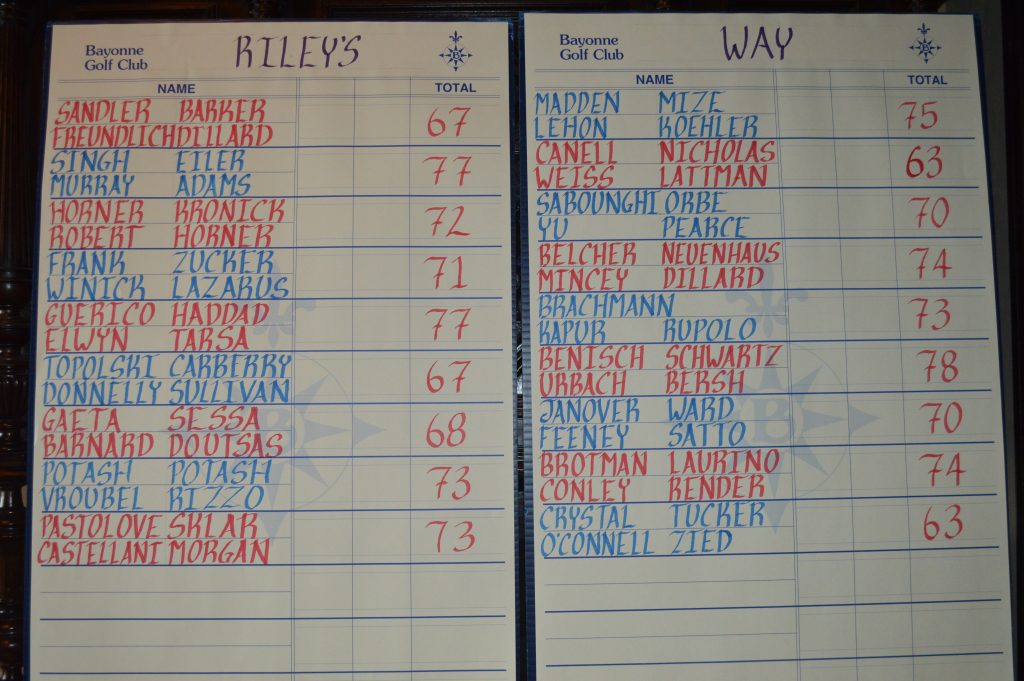 Bayonne
Golf Club
RILEY'S
NAME TOTAL
SANDLER BARKER
67
FREUNDLICH DILLARD
SINGH EILER
77
MURRAY ADAMS
HORNER KRONICK
72
ROBERT HORNER
FRANK ZUCKER
71
WINICK LAZARUS
GUERICO HADDAD
77
ELWYN TARSA
TOPOLSKI CARBERRY
67
DONNELLY SULLIVAN
GAETA SESSA
68
BARNARD DOUTSAS
POTASH POTASH
73
VROUBEL RIZZO
PASTOLOVE SKLAR
73
CASTELLANI MORGAN
Bayonne
Golf Club
WAY
NAME TOTAL
MADDEN MIZE
75
LEHON KOEHLER
CANELL NICHOLAS
63
WEISS LATTMAN
SABOUNGHI ORBE
70
YU PEARCE
BELCHER NEUENHAUS
74
MINCEY DILLARD
BRACHMANN
73
KAPUR RUPOLO
BENISCH SCHWARTZ
78
URBACH BERSH
JANOVER WARD
70
FEENEY SATTO
BROTMAN LAURINO
74
CONLEY RENDER
CRYSTAL TUCKER
63
O'CONNELL ZIED